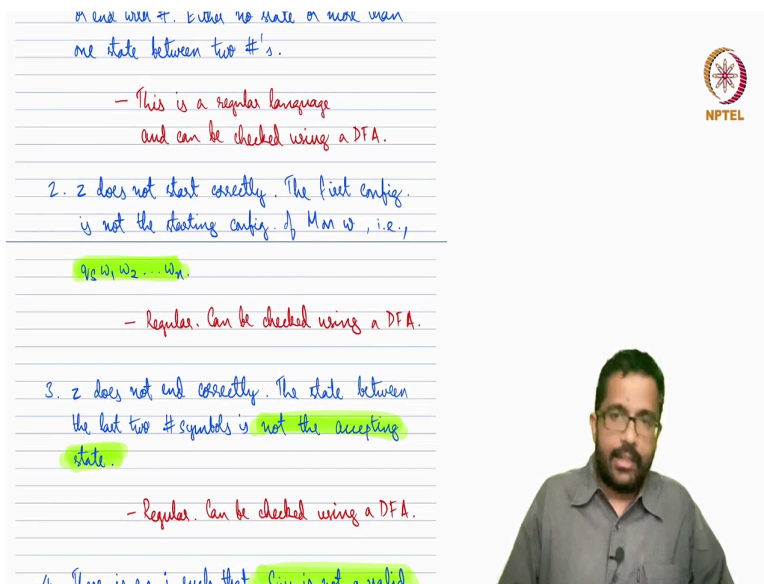 or end with #. Either no state or more than
one state between two #'s.
— This is a regular language
and can be checked using a DFA.
NPTEL
2. z does not start correctly. The first config.
is not the starting config. of M on w, i.e.,
qs w1 w2 ... wn.
— Regular. Can be checked using a DFA.
3. z does not end correctly. The state between
the last two # symbols is not the accepting
state.
— Regular. Can be checked using a DFA.
4. There is an i such that Ci+1 is not a valid